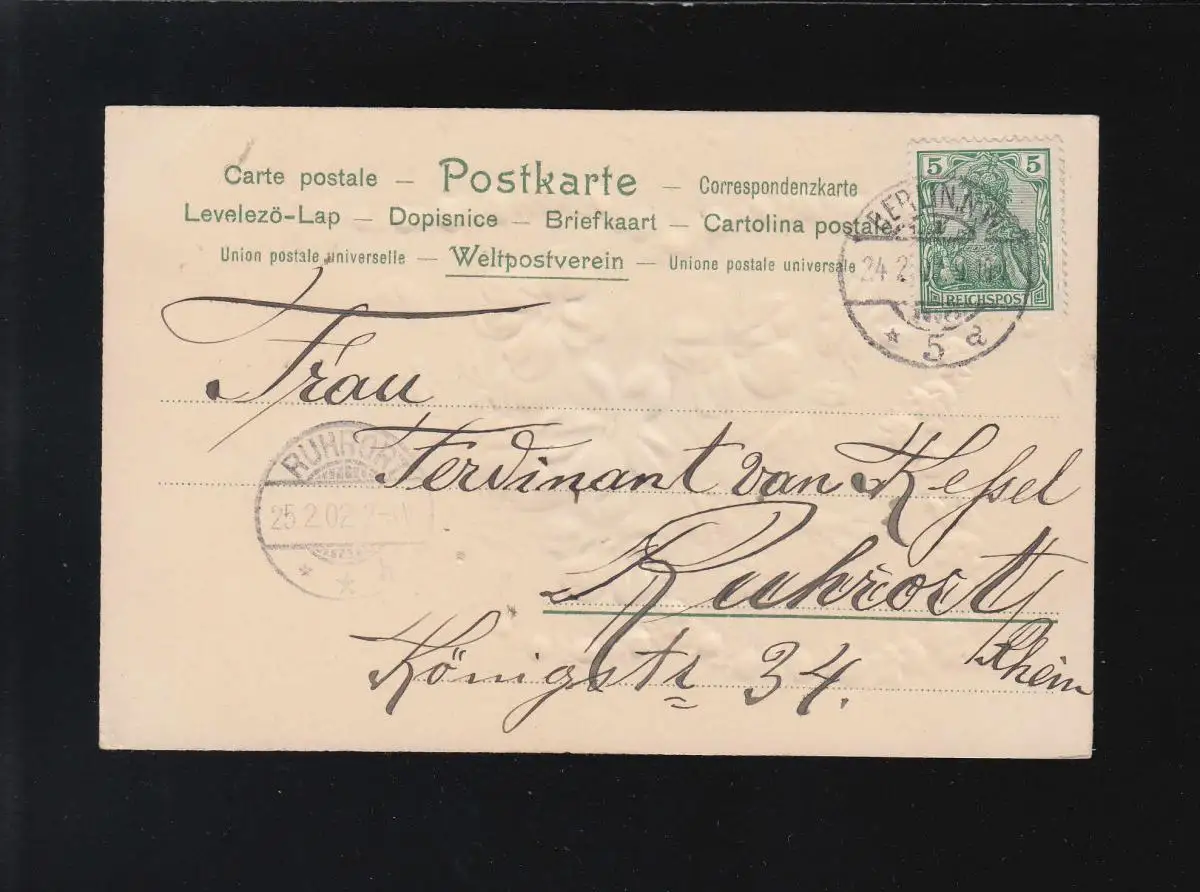 Carte postale — Postkarte — Correspondenzkarte
Levelezö-Lap — Dopisnice — Briefkaart — Cartolina postale
Union postale universelle — Weltpostverein — Unione postale universale
5 5
REICHSPOST
BERLIN, N.W.
24 2
* 5 a
Frau
Ferdinant van Kessel
RUHRORT
25.2.02
Ruhrort
Rhein
Königstr 34.